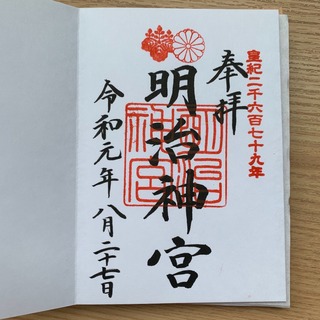 皇紀二千六百七十九年
奉拝
明治神宮
明治神宮
令和元年八月二十七日